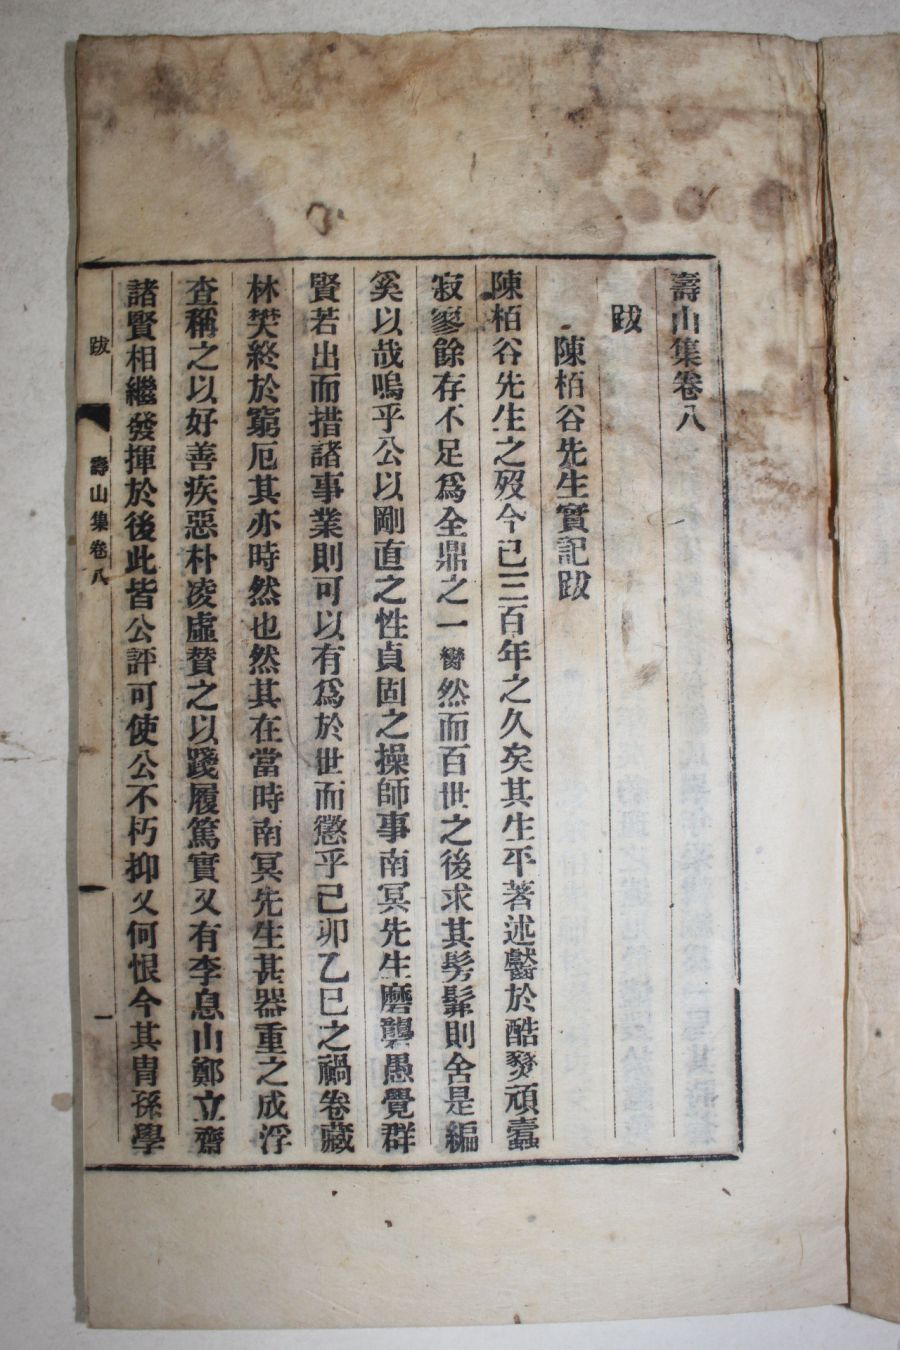 壽山集卷八
跋
陳栢谷先生實記跋
陳栢谷先生之歿今已三百年之久矣其生平著述鬱於酷燹頑蠹
寂寥餘存不足爲全鼎之一臠然而百世之後求其髣髴則舍是編
奚以哉嗚乎公以剛直之性貞固之操師事南冥先生磨礱愚覺群
賢若出而措諸事業則可以有爲於世而懲乎己卯乙巳之禍卷藏
林樊終於窮厄其亦時然也然其在當時南冥先生甚器重之成浮
査稱之以好善疾惡朴凌虛賛之以踐履篤實又有李息山鄭立齋
諸賢相繼發揮於後此皆公評可使公不朽抑又何恨今其胄孫學
跋
壽山集卷八
一